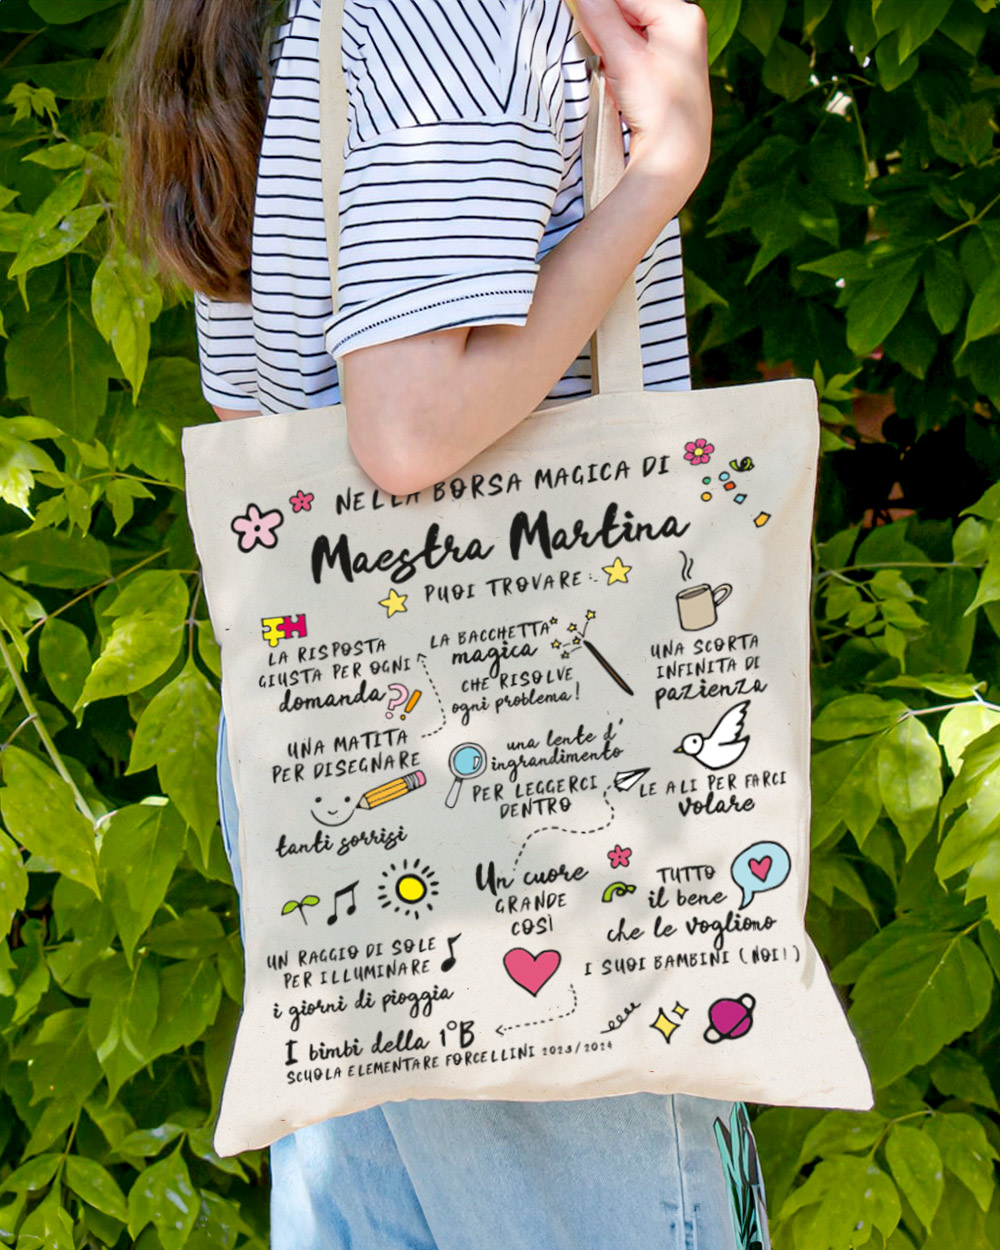 NELLA BORSA MAGICA DI
Maestra Martina
PUOI TROVARE:
LA RISPOSTA
GIUSTA PER OGNI
domanda
?!
LA BACCHETTA
magica
CHE RISOLVE
ogni problema!
UNA SCORTA
INFINITA DI
pazienza
UNA MATITA
PER DISEGNARE
tanti sorrisi
una lente d'
ingrandimento
PER LEGGERCI
DENTRO
LE ALI PER FARCI
volare
UN RAGGIO DI SOLE
PER ILLUMINARE
i giorni di pioggia
Un cuore
GRANDE
COSÌ
TUTTO
il bene
che le vogliono
I SUOI BAMBINI (NOI!)
I bimbi della 1°B
SCUOLA ELEMENTARE FORCELLINI 2023/2024